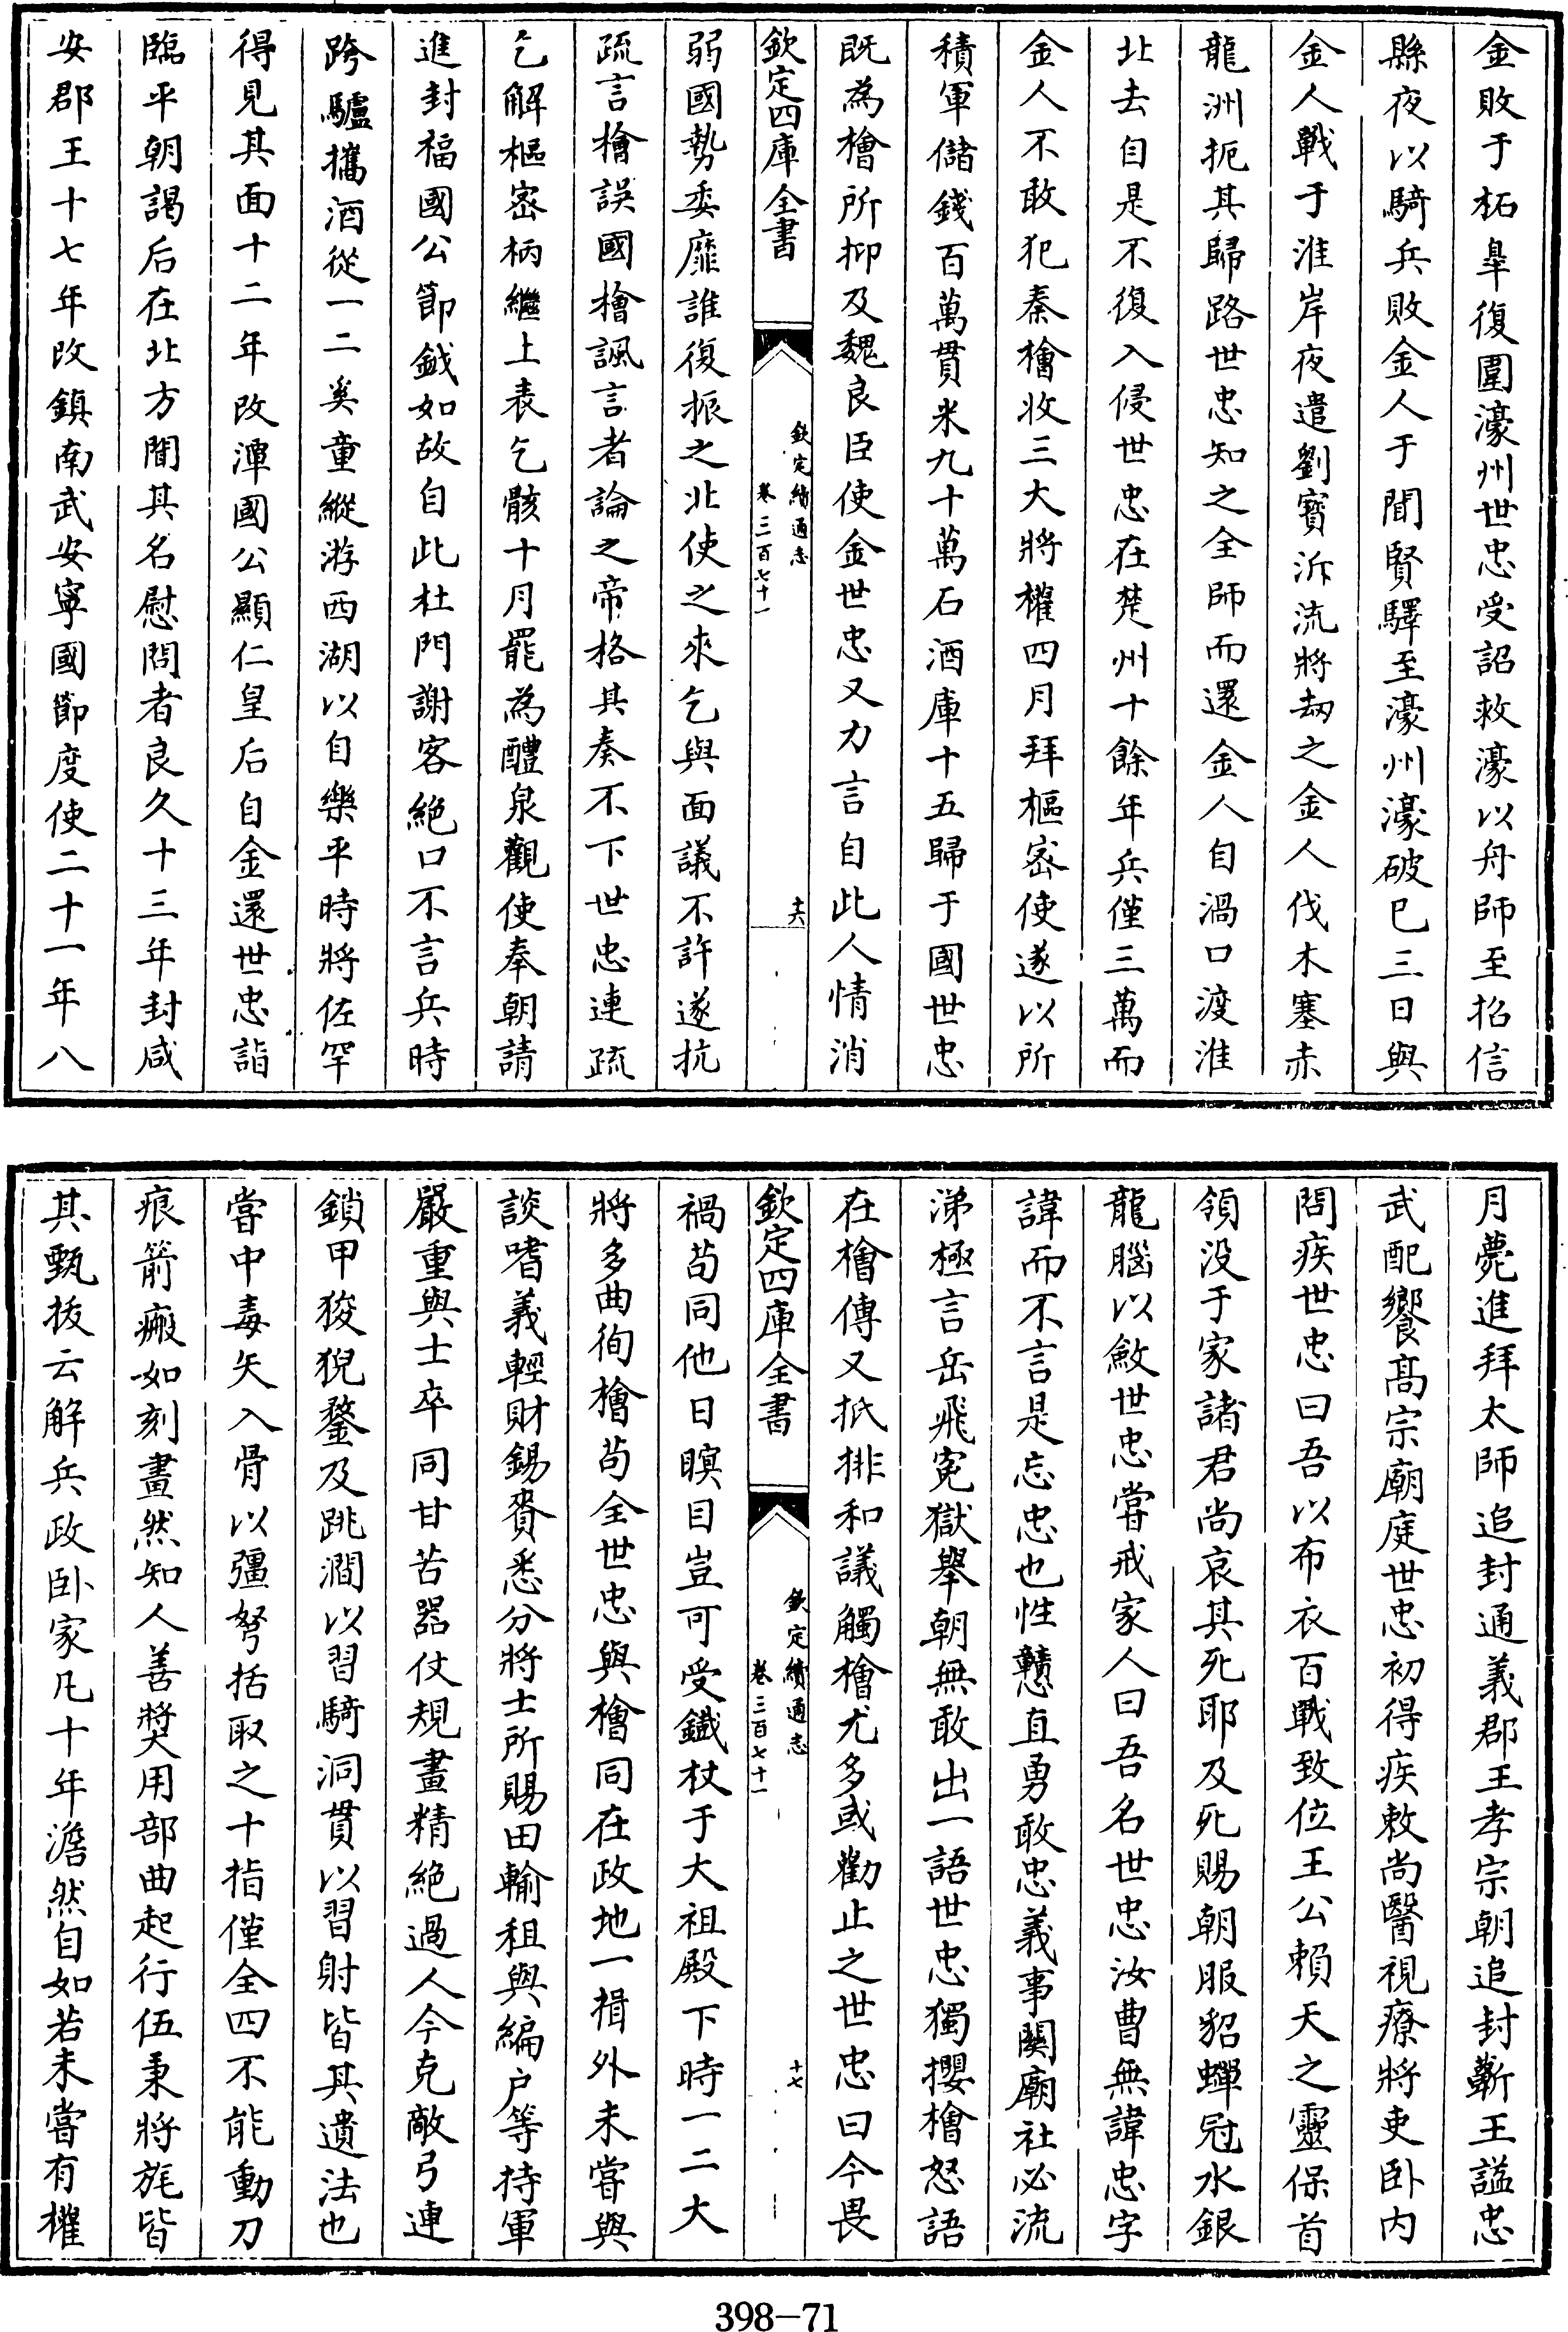 金敗于柘臯復圍濠州世忠受詔救濠以舟師至招信
縣夜以騎兵敗金人于聞賢驛至濠州濠破已三日與
金人戰于淮岸夜遣劉寳泝流將劫之金人伐木塞赤
龍洲扼其歸路世忠知之全師而還金人自渦口渡淮
北去自是不復入侵世忠在楚州十餘年兵僅三萬而
金人不敢犯秦檜收三大將權四月拜樞宻使遂以所
積軍儲錢百萬貫米九十萬石酒庫十五歸于國世忠
既為檜所抑及魏良臣使金世忠又力言自此人情消
欽定四庫全書
欽定續通志
卷三百七十一
十六
弱國勢委靡誰復振之北使之來乞與面議不許遂抗
疏言檜誤國檜諷言者論之帝格其奏不下世忠連疏
乞解樞宻柄繼上表乞骸十月罷為醴泉觀使奉朝請
進封福國公節鉞如故自此杜門謝客絶口不言兵時
跨驢攜酒從一二奚童縱游西湖以自樂平時將佐罕
得見其面十二年改潭國公顯仁皇后自金還世忠詣
臨平朝謁后在北方聞其名慰問者良久十三年封咸
安郡王十七年改鎮南武安寧國節度使二十一年八
月薨進拜太師追封通義郡王孝宗朝追封蘄王諡忠
武配饗髙宗廟庭世忠初得疾敕尚醫視療將吏卧内
問疾世忠曰吾以布衣百戰致位王公頼天之靈保首
領没于家諸君尚哀其死耶及死賜朝服貂蟬冠水銀
龍腦以斂世忠嘗戒家人曰吾名世忠汝曹無諱忠字
諱而不言是忘忠也性戇直勇敢忠義事闗廟社必流
涕極言岳飛寃獄舉朝無敢出一語世忠獨攖檜怒語
在檜傳又抵排和議觸檜尤多或勸止之世忠曰今畏
欽定四庫全書
欽定續通志
卷三百七十一
十七
禍苟同他日瞑目豈可受鐵杖于大祖殿下時一二大
將多曲徇檜苟全世忠與檜同在政地一揖外未嘗與
談嗜義輕財錫賚悉分將士所賜田輸租與編户等持軍
嚴重與士卒同甘苦器仗規畫精絶過人今克敵弓連
鎖甲狻猊鍪及跳澗以習騎洞貫以習射皆其遺法也
嘗中毒矢入骨以彊弩括取之十指僅全四不能動刀
痕箭瘢如刻畫然知人善奬用部曲起行伍秉將旄皆
其甄拔云解兵政卧家凡十年澹然自如若未嘗有權
398-71